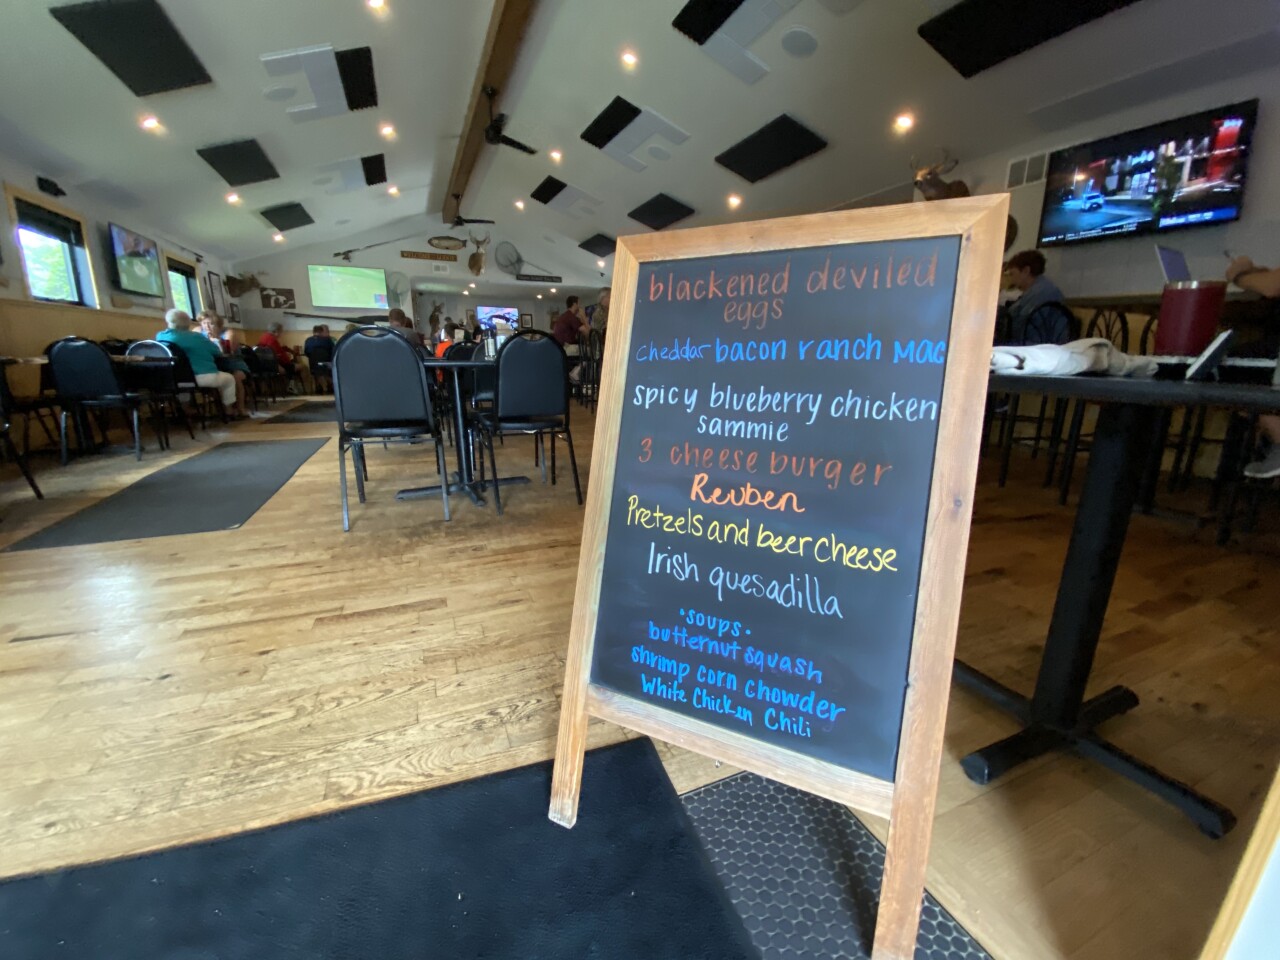 blackened deviled
eggs
cheddar bacon ranch Mac
spicy blueberry chicken
sammie
3 cheese burger
Reuben
Pretzels and beer cheese
Irish quesadilla
•soups•
butternut squash
shrimp corn chowder
White Chicken Chili